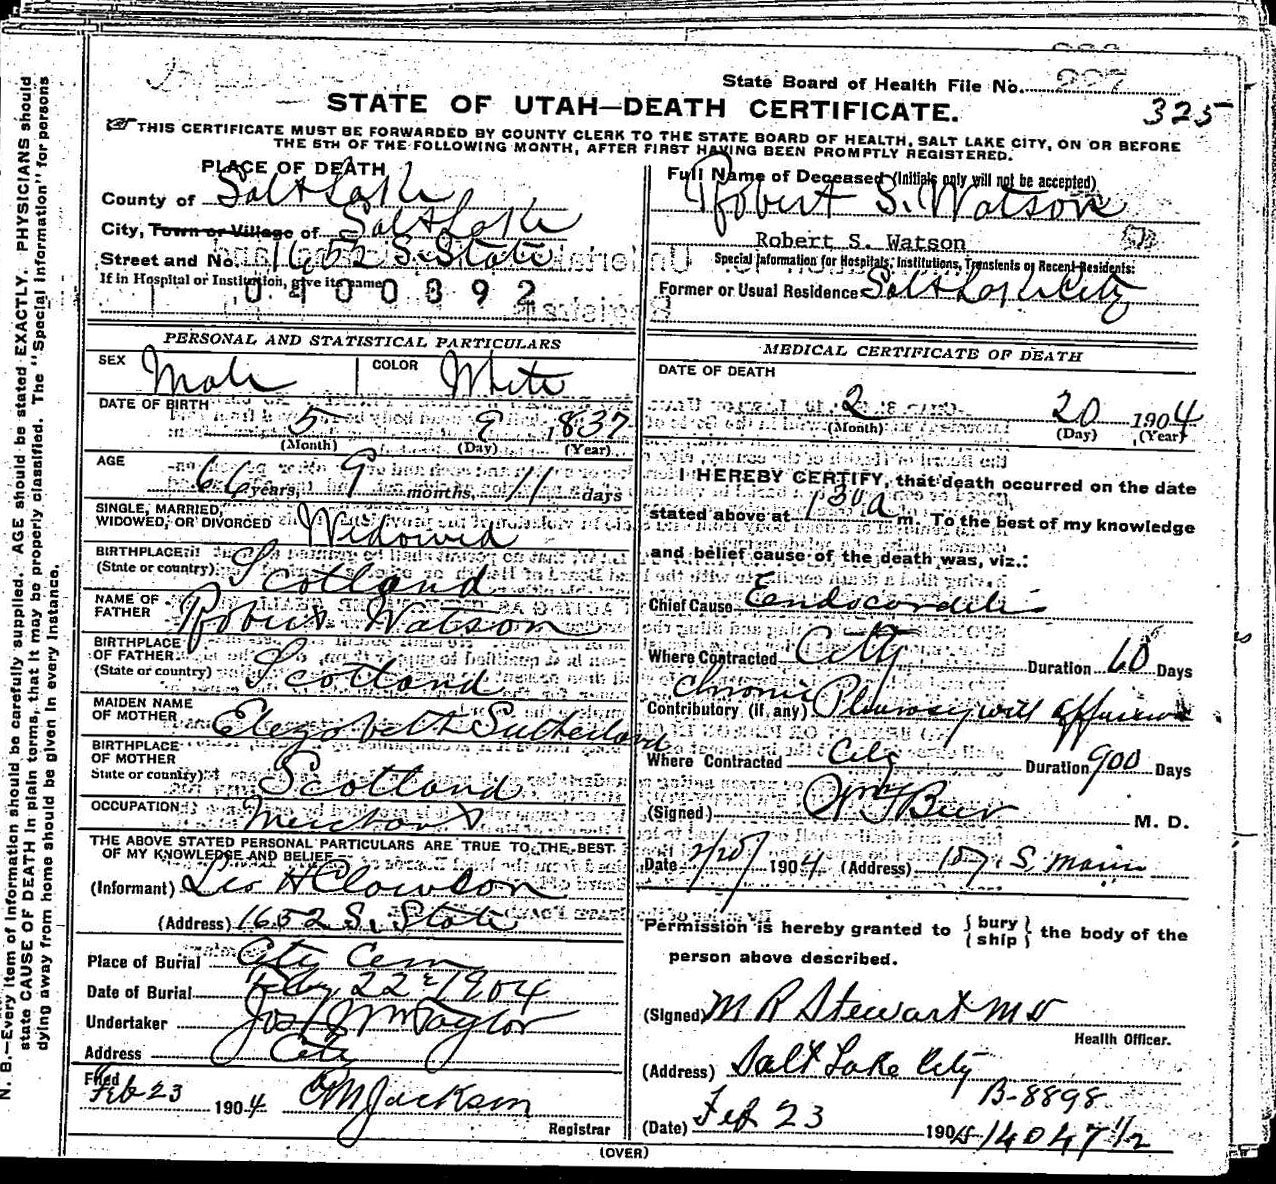 State Board of Health File No. 227
325
STATE OF UTAH—DEATH CERTIFICATE.
THIS CERTIFICATE MUST BE FORWARDED BY COUNTY CLERK TO THE STATE BOARD OF HEALTH, SALT LAKE CITY, ON OR BEFORE
THE 5TH OF THE FOLLOWING MONTH, AFTER FIRST HAVING BEEN PROMPTLY REGISTERED.
PLACE OF DEATH
County of Salt Lake
City, Town or Village of Salt Lake
Street and No. 1652 S. State
If in Hospital or Institution, give its name
0100892
Full Name of Deceased (Initials only will not be accepted)
Robert S. Watson
Robert S. Watson
Special Information for Hospitals, Institutions, Transients or Recent Residents:
Former or Usual Residence Salt Lake City
PERSONAL AND STATISTICAL PARTICULARS
SEX Male COLOR White
DATE OF BIRTH
5 9 1837
(Month) (Day) (Year)
AGE
66 years, 9 months, 11 days
SINGLE, MARRIED,
WIDOWED, OR DIVORCED Widowed
BIRTHPLACE
(State or country) Scotland
NAME OF
FATHER Robert Watson
BIRTHPLACE
OF FATHER
(State or country) Scotland
MAIDEN NAME
OF MOTHER Elezabeth Sutherland
BIRTHPLACE
OF MOTHER
State or country) Scotland
OCCUPATION Merchant
THE ABOVE STATED PERSONAL PARTICULARS ARE TRUE TO THE BEST
OF MY KNOWLEDGE AND BELIEF
(Informant) Leo H Clawson
(Address) 1652 S. State
Place of Burial City Cem
Date of Burial Feby 22 1904
Undertaker Jos Wm Taylor
Address City
Filed
Feb 23 1904 Jackson
Registrar
MEDICAL CERTIFICATE OF DEATH
DATE OF DEATH
2 20 1904
(Month) (Day) (Year)
I HEREBY CERTIFY, that death occurred on the date
stated above at 130 a m. To the best of my knowledge
and belief cause of the death was, viz.:
Chief Cause Endocarditis
Where Contracted City Duration 60 Days
Chronic
Contributory (if any) Pleurosy with effusion
Where Contracted City Duration 900 Days
(Signed) Wm F Beer M. D.
Date 2/20/ 1904 (Address) 107 S. Main
Permission is hereby granted to { bury / ship } the body of the
person above described.
(Signed) M R Stewart MD
Health Officer.
(Address) Salt Lake City
B-8898
(Date) Feb 23 1904 14047½
(OVER)
N. B.—Every item of information should be carefully supplied. AGE should be stated EXACTLY. PHYSICIANS should
state CAUSE OF DEATH in plain terms, that it may be properly classified. The "Special Information" for persons
dying away from home should be given in every instance.